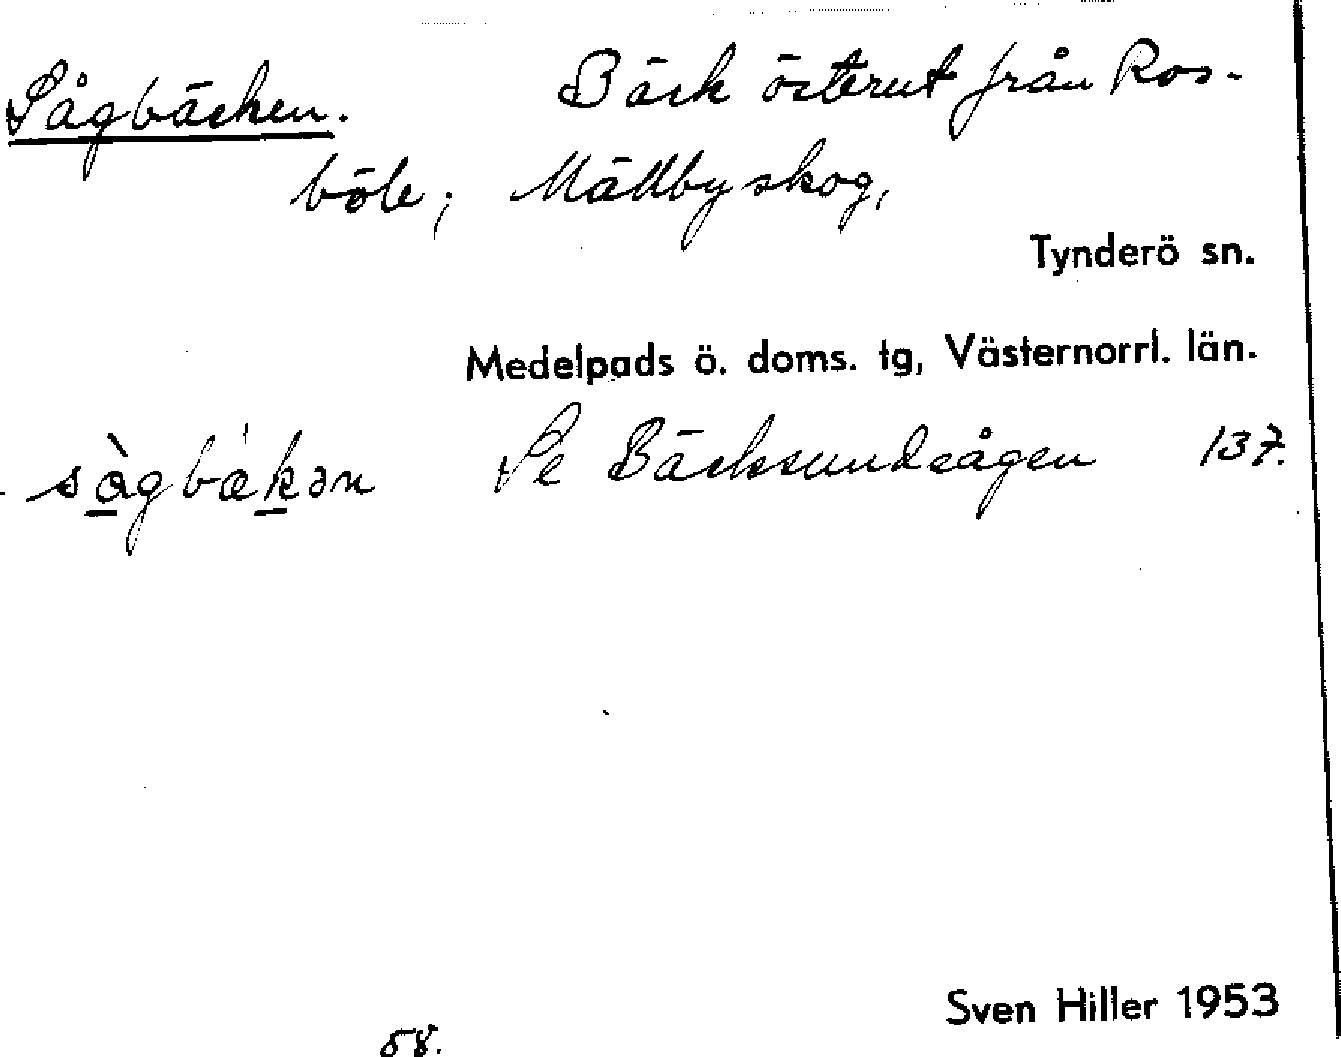 Sågbäcken. Bäck österut från Ros-
böle; Mällby skog,
Tynderö sn.
Medelpads ö. doms. tg, Västernorrl. län.
sàgbækən Se Bäcksundsågen 137.
Sven Hiller 1953
58.